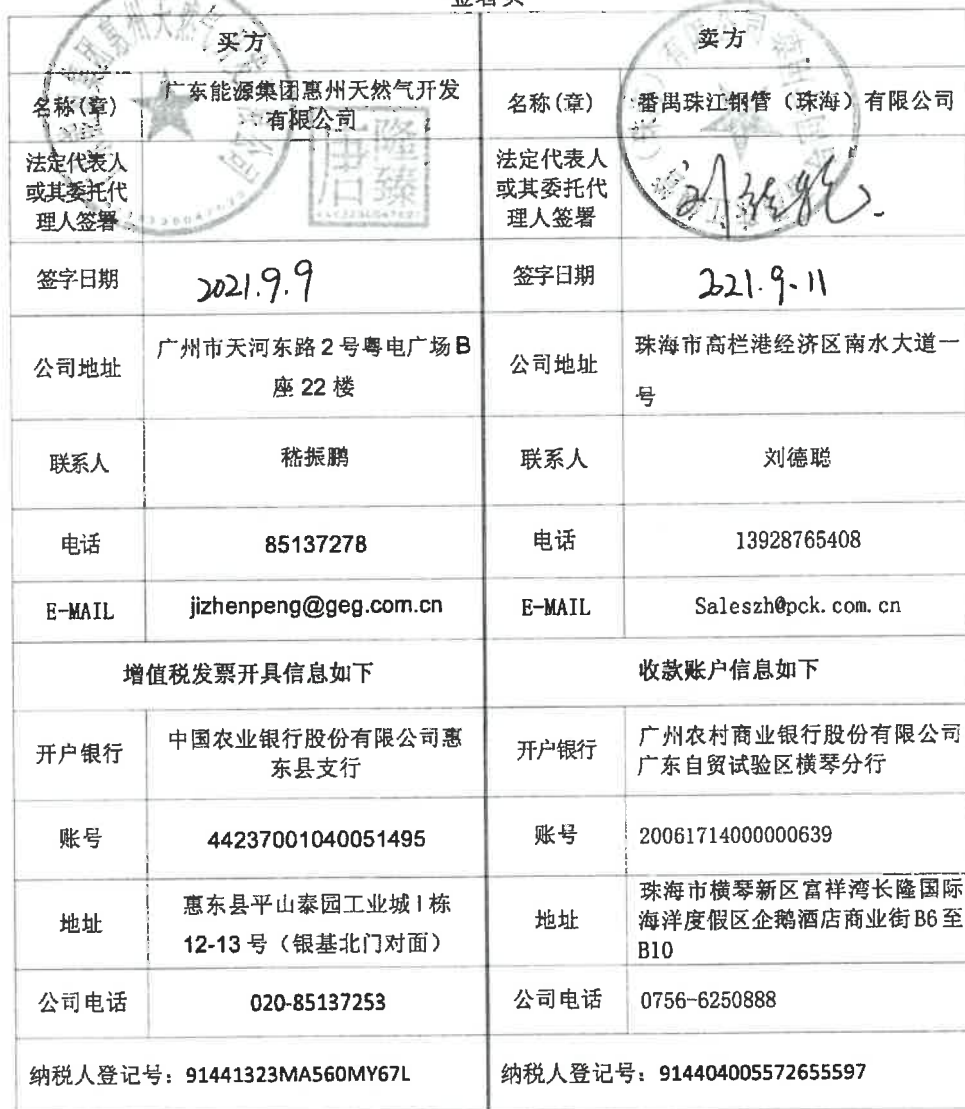 签署页
买方
卖方
名称(章)
广东能源集团惠州天然气开发
有限公司
名称(章)
番禺珠江钢管（珠海）有限公司
法定代表人
或其委托代
理人签署
唐隆臻
法定代表人
或其委托代
理人签署
签字日期
2021.9.9
签字日期
2021.9.11
公司地址
广州市天河东路2号粤电广场B
座22楼
公司地址
珠海市高栏港经济区南水大道一
号
联系人
嵇振鹏
联系人
刘德聪
电话
85137278
电话
13928765408
E-MAIL
jizhenpeng@geg.com.cn
E-MAIL
Saleszh@pck.com.cn
增值税发票开具信息如下
收款账户信息如下
开户银行
中国农业银行股份有限公司惠
东县支行
开户银行
广州农村商业银行股份有限公司
广东自贸试验区横琴分行
账号
44237001040051495
账号
20061714000000639
地址
惠东县平山泰园工业城I栋
12-13号（银基北门对面）
地址
珠海市横琴新区富祥湾长隆国际
海洋度假区企鹅酒店商业街B6至
B10
公司电话
020-85137253
公司电话
0756-6250888
纳税人登记号：91441323MA560MY67L
纳税人登记号：914404005572655597